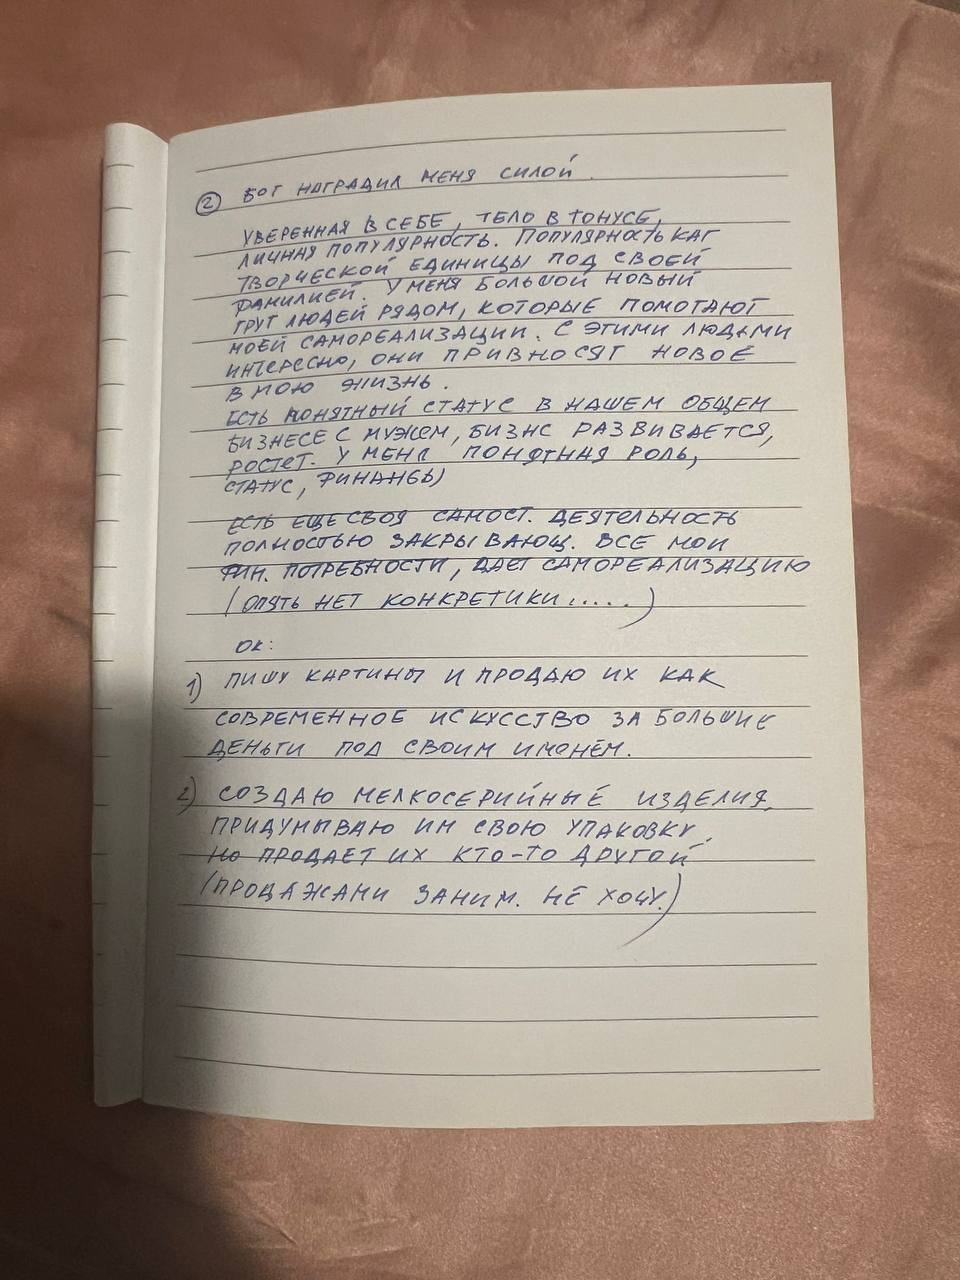 ② БОГ НАГРАДИЛ МЕНЯ СИЛОЙ.
УВЕРЕННАЯ В СЕБЕ, ТЕЛО В ТОНУСЕ,
ЛИЧНАЯ ПОПУЛЯРНОСТЬ. ПОПУЛЯРНОСТЬ КАК
ТВОРЧЕСКОЙ ЕДИНИЦЫ ПОД СВОЕЙ
ФАМИЛИЕЙ. У МЕНЯ БОЛЬШОЙ НОВЫЙ
КРУГ ЛЮДЕЙ РЯДОМ, КОТОРЫЕ ПОМОГАЮТ
МОЕЙ САМОРЕАЛИЗАЦИИ. С ЭТИМИ ЛЮДЬМИ
ИНТЕРЕСНО, ОНИ ПРИВНОСЯТ НОВОЕ
В МОЮ ЖИЗНЬ.
ЕСТЬ ПОНЯТНЫЙ СТАТУС В НАШЕМ ОБЩЕМ
БИЗНЕСЕ С МУЖЕМ, БИЗНС РАЗВИВАЕТСЯ,
РОСТЕТ. У МЕНЯ ПОНЯТНАЯ РОЛЬ,
СТАТУС, ФИНАНСЫ)
ЕСТЬ ЕЩЕ СВОЯ САМОСТ. ДЕЯТЕЛЬНОСТЬ
ПОЛНОСТЬЮ ЗАКРЫВАЮЩ. ВСЕ МОИ
ФИН. ПОТРЕБНОСТИ, ДАЕТ САМОРЕАЛИЗАЦИЮ
(ОПЯТЬ НЕТ КОНКРЕТИКИ.....)
ОК:
1) ПИШУ КАРТИНЫ И ПРОДАЮ ИХ КАК
СОВРЕМЕННОЕ ИСКУССТВО ЗА БОЛЬШИЕ
ДЕНЬГИ ПОД СВОИМ ИМЕНЕМ.
2) СОЗДАЮ МЕЛКОСЕРИЙНЫЕ ИЗДЕЛИЯ,
ПРИДУМЫВАЮ ИМ СВОЮ УПАКОВКУ,
НО ПРОДАЕТ ИХ КТО-ТО ДРУГОЙ
(ПРОДАЖАМИ ЗАНИМ. НЕ ХОЧУ.)